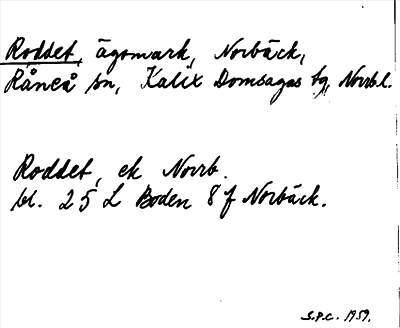 Roddet, ägomark, Norbäck,
Råneå sn, Kalix Domsagas tg, Norrbl.
Roddet, ek Norrb.
bl. 25 L Boden 8 f Norbäck.
S.P.C. 1959.